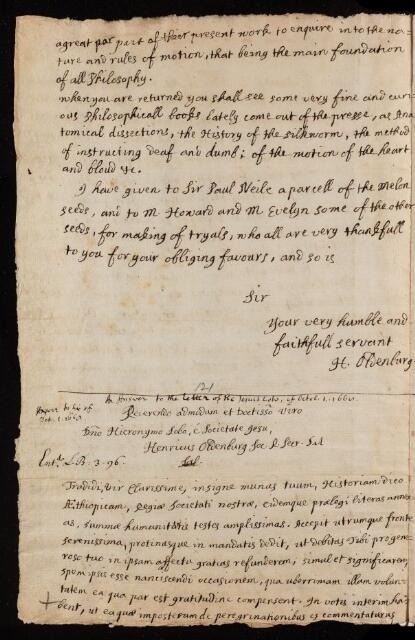 a great par part of their present work to enquire into the na-
ture and rules of motion, that being the main foundation
of all Philosophy.
when you are returned you shall see some very fine and curi-
ous Philosophicall books lately come out of the presse, as Ana-
tomical dissections, the History of the silkworm, the method
of instructing deaf and dumb; of the motion of the heart
and bloud &c.
I have given to Sir Paul Neile a parcell of the Melon
seeds, and to M. Howard and M. Evelyn some of the other
seeds, for making of tryals, who all are very thankfull
to you for your obliging favours, and so is
Sir
Your very humble and
faithfull servant
H. Oldenburg
121
An Answer to the Letter of the Jesuit Lobo, of Octob. 1.
Reverendo admodum et Doctissō Viro
Dn̄o Hieronymo Lobo, è Societate Jesu,
Henricus Oldenburg Soc. R. Secr. Sal
Ent.d L.B. 3. 96.
Tradidi, Vir Clarissime, insigne munus tuum, Historiam dico
Æthiopicam, Regiæ Societati nostræ, eidemque prælegi literas annex-
as, summæ humanitatis testes amplissimas. Accepit utrumque fronte
serenissima, protinusque in mandatis dedit, ut debitas Tibi pro gene-
roso tuo in ipsam affectu gratias refunderem, simul et significarem,
spem ipsi esse nanciscendi occasionem, qua uberrimam illam volun-
tatem ea qua par est gratitudine compenset. In votis interim ha-
bent, ut ea quæ imposterum de peregrinationibus es commentaturus